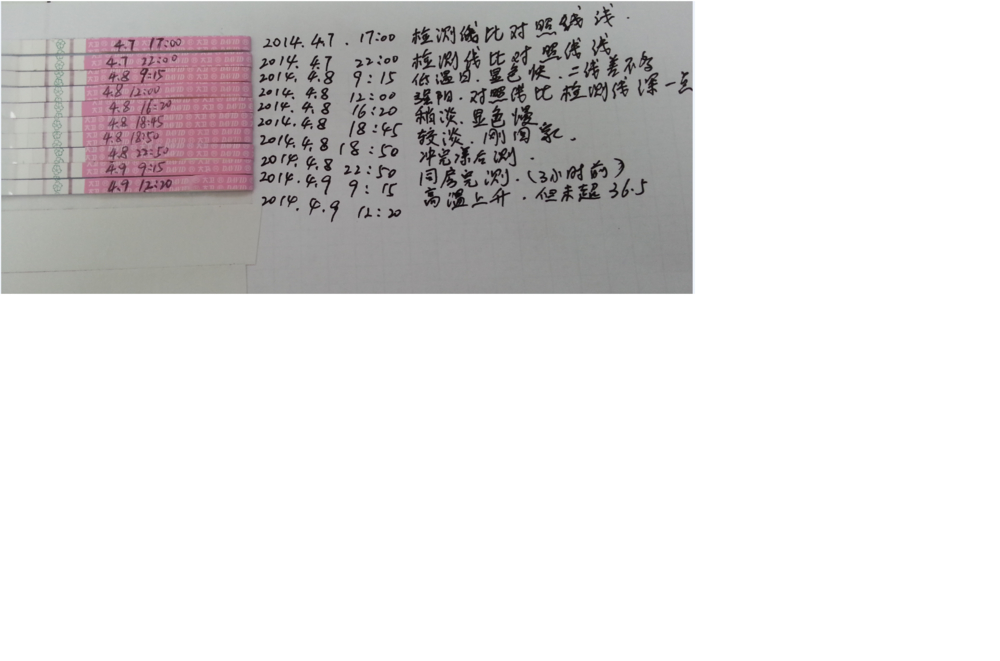 4.7 17:00
4.7 22:00
4.8 9:15
4.8 12:00
4.8 16:20
4.8 18:45
4.8 18:50
4.8 22:50
4.9 9:15
4.9 12:20
2014.4.7. 17:00 检测线比对照线浅.
2014.4.7 22:00 检测线比对照线浅
2014.4.8 9:15 低温日.显色快.二线差不多
2014.4.8 12:00 强阳.对照线比检测线深一点
2014.4.8 16:20 稍淡.显色慢
2014.4.8 18:45 较淡.刚同家.
2014.4.8 18:50 冲完凉后测.
2014.4.8 22:50 同房完测.(3小时前)
2014.4.9 9:15 高温上升.但未超36.5
2014.4.9 12:20